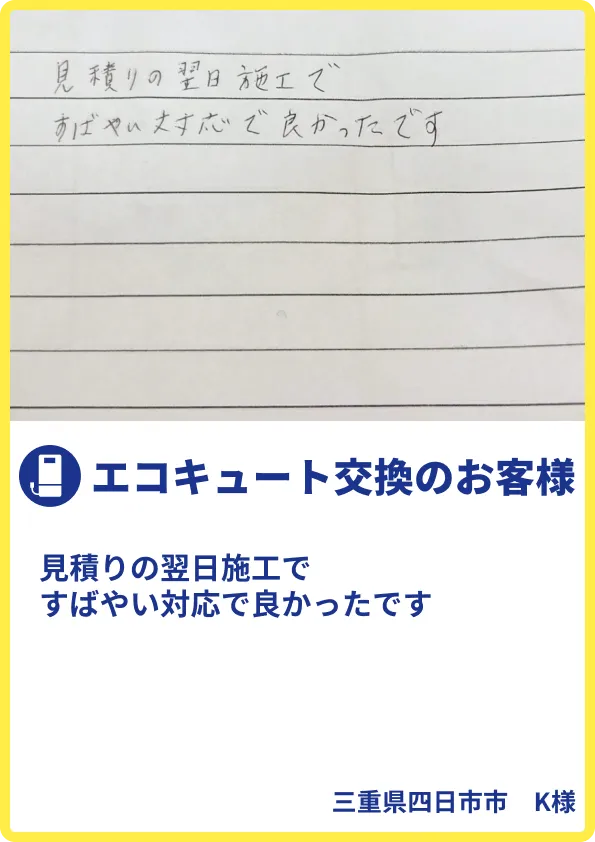 見積りの翌日施工で
すばやい対応で良かったです
エコキュート交換のお客様
見積りの翌日施工で
すばやい対応で良かったです
三重県四日市市　K様